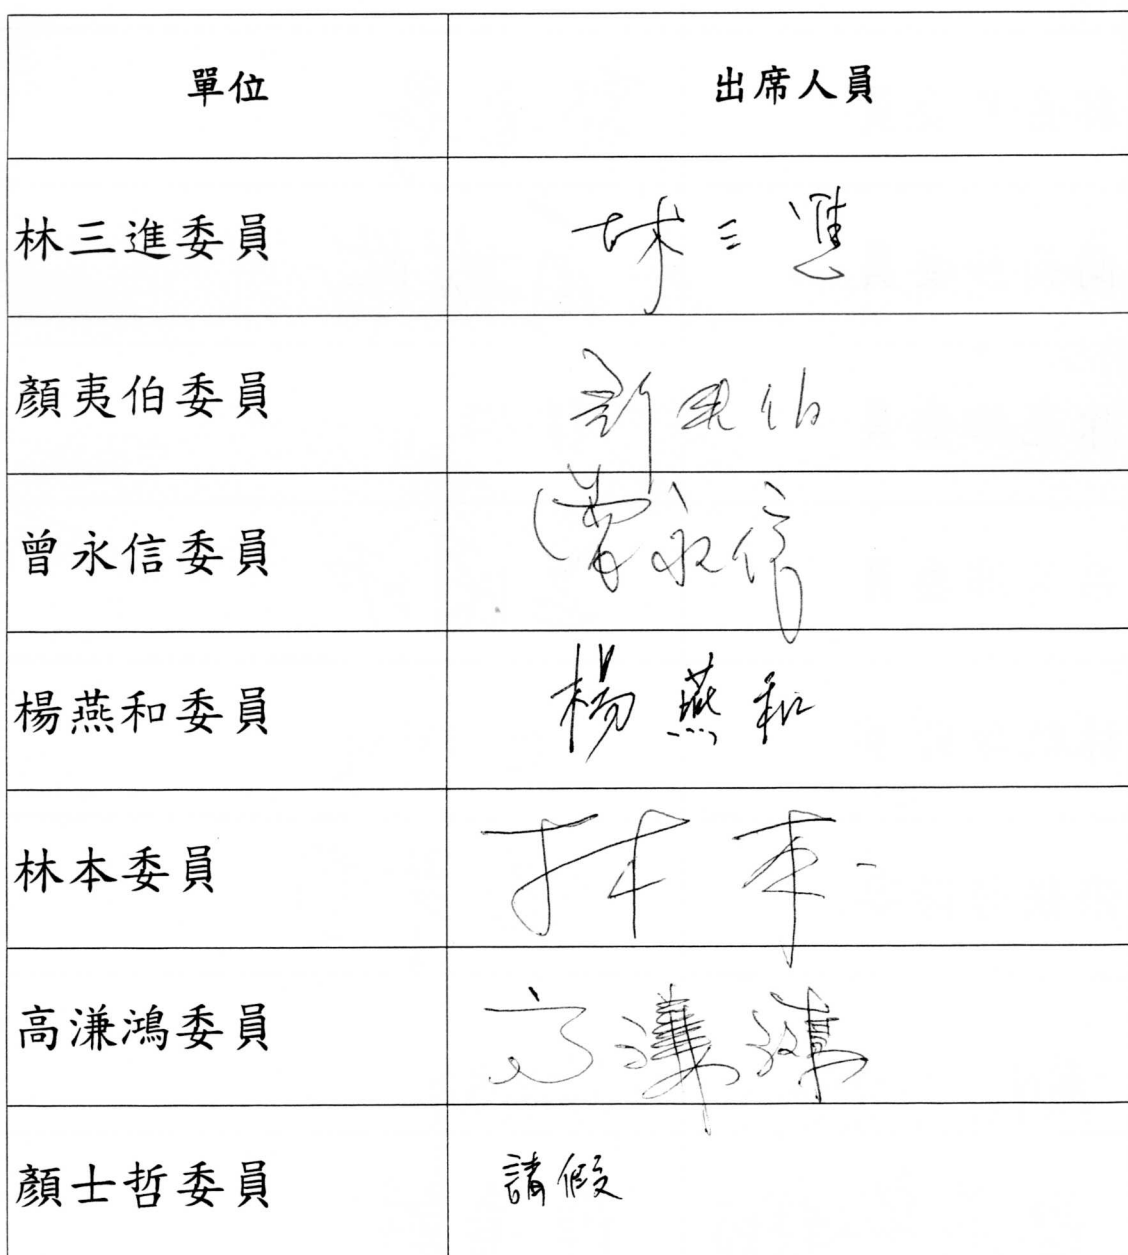 單位 出席人員
林三進委員 林三進
顏夷伯委員
曾永信委員 曾永信
楊燕和委員 楊燕和
林本委員 林本
高溓鴻委員 高溓鴻
顏士哲委員 請假